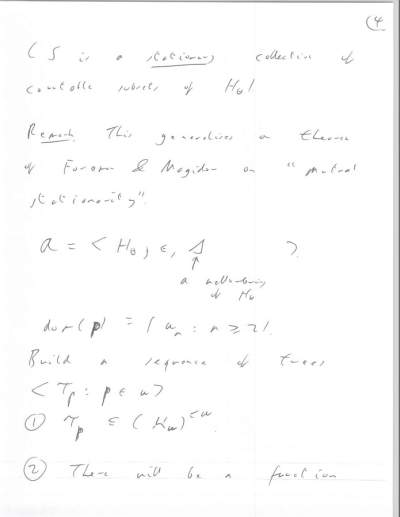 (4
( S is a stationary collection of
countable subsets of H_θ)
Remark. This generalizes a theorem
of Foreman & Magidor on "mutual
stationarity".
a = < H_θ, ∈, Δ >.
↑
a wellordering
of H_θ
dom(p) = { ω_n : n ≥ 2 }.
Build a sequence of trees
< T_p : p ∈ ω >
① T_p ⊆ ( )^{<ω}
② There will be a function